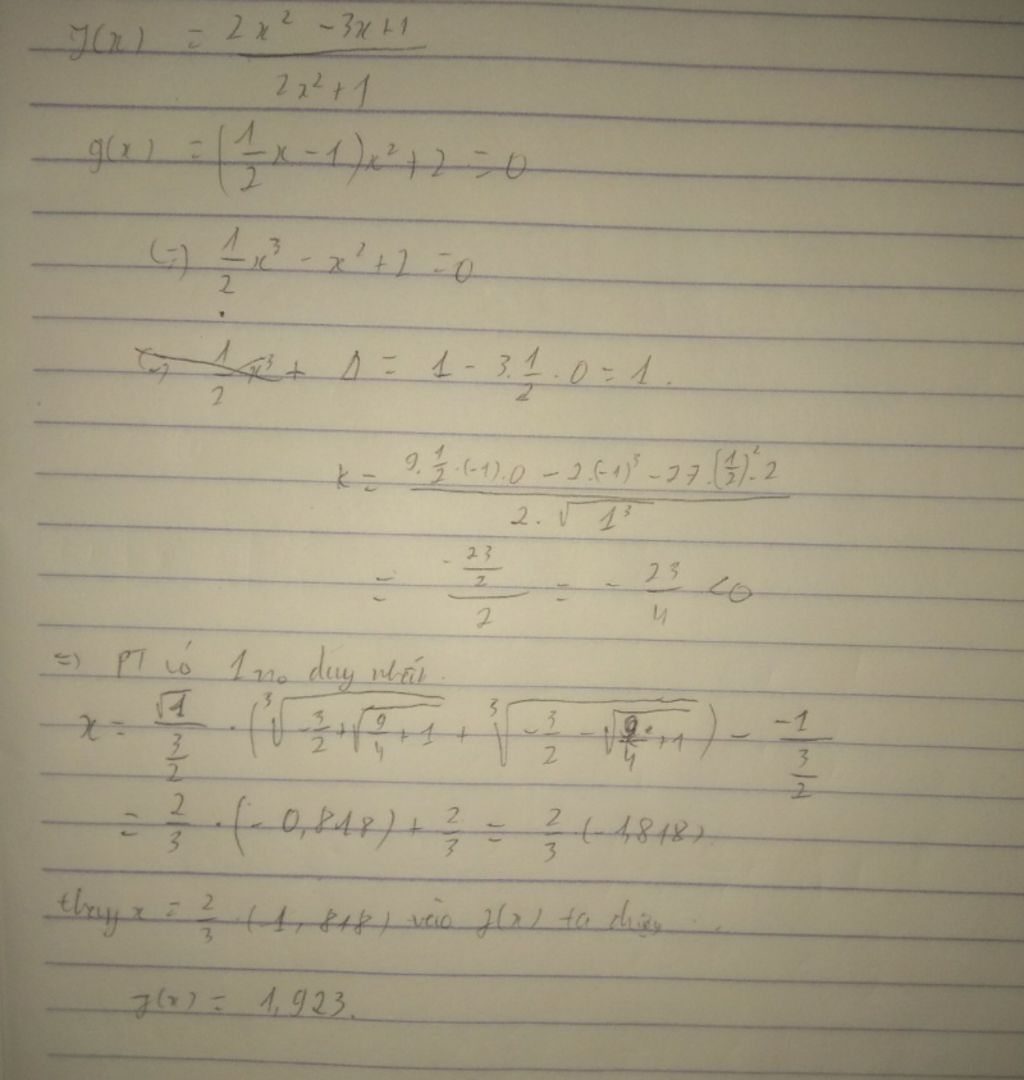 f(x) = \frac{2x² - 3x + 1}{2x² + 1}
g(x) = (\frac{1}{2}x - 1)x² + 2 = 0
(=) \frac{1}{2}x³ - x² + 2 = 0
+ Δ = 1 - 3.\frac{1}{2}.0 = 1.
k = \frac{9.\frac{1}{2}.(-1).0 - 2.(-1)³ - 27.(\frac{1}{2})².2}{2.\sqrt{1³}}
= \frac{-\frac{23}{2}}{2} = -\frac{23}{4} <0
=) PT có 1 no duy nhất.
x = \frac{\sqrt{1}}{\frac{3}{2}} . (\sqrt[3]{-\frac{3}{2} + \sqrt{\frac{9}{4} + 1}} + \sqrt[3]{-\frac{3}{2} - \sqrt{\frac{9}{4} + 1}}) - \frac{-1}{\frac{3}{2}}
= \frac{2}{3} . (-0,818) + \frac{2}{3} = \frac{2}{3} (-1,818)
thay x = \frac{2}{3} . (1, 818) vào f(x) ta
f(x) = 1,923.